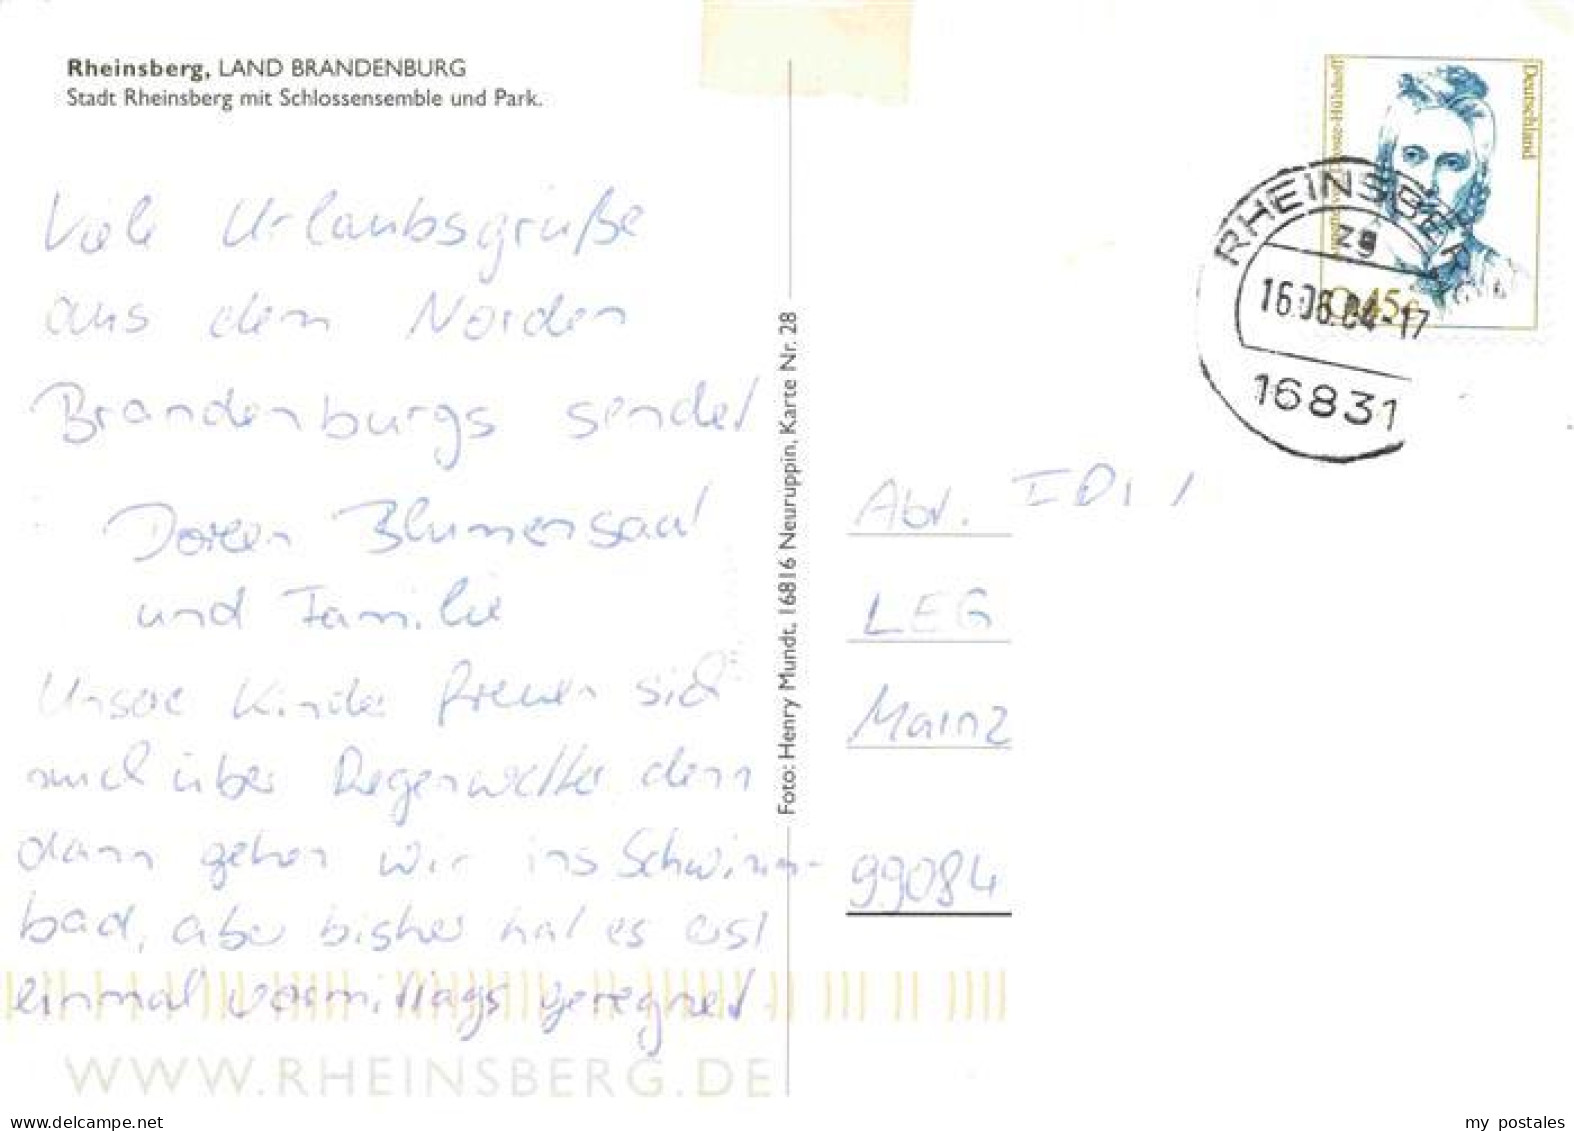 Rheinsberg, LAND BRANDENBURG
Stadt Rheinsberg mit Schlossensemble und Park.
Viele Urlaubsgrüße
aus dem Norden
Brandenburgs sendet
Doreen Blumensaat
und Familie
Unsere Kinder freuen sich
mal über Regenwetter denn
dann gehen wir ins Schwimm-
bad, aber bisher hat es erst
einmal vormittags geregnet.
WWW.RHEINSBERG.DE
Foto: Henry Mundt, 16816 Neuruppin, Karte Nr. 28
Deutschland
0,45€
RHEINSBERG
zg
16.06.04-17
16831
Abt.
LEG
Mainz
99084
my postales